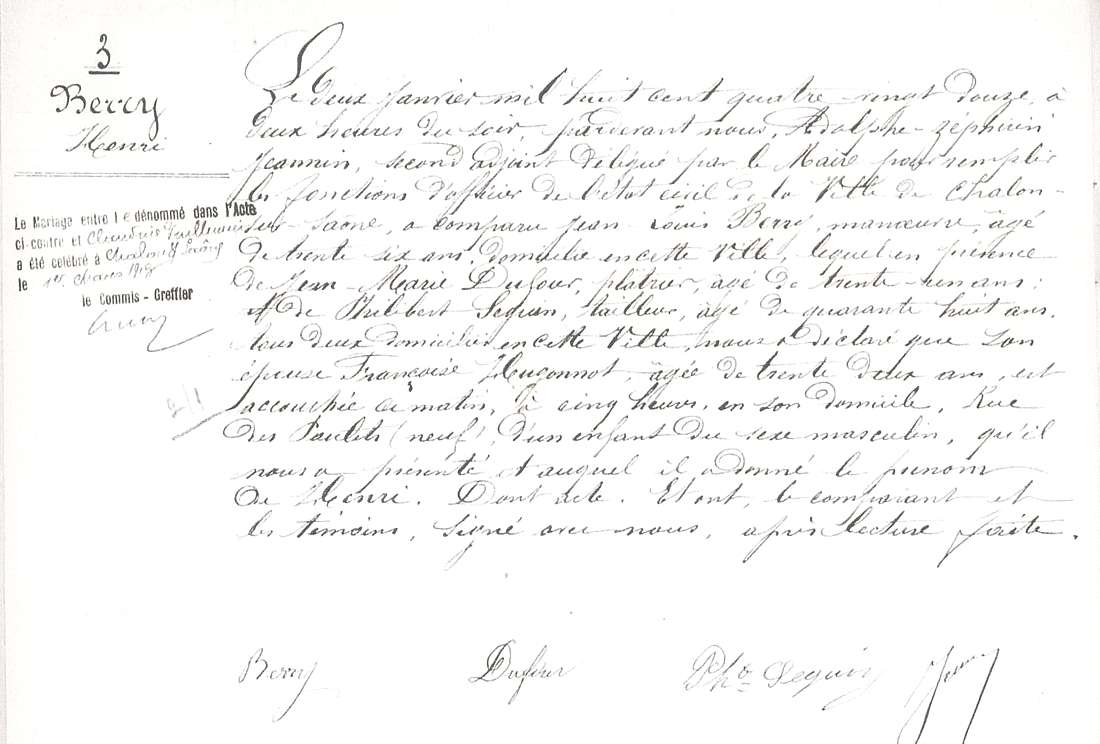 3
Berry
Henri
Le Mariage entre le dénommé dans l'Acte
ci-contre et Claudine
a été célébré à Chalon s/ Saône
le 1er Mars 1918
le Commis - Greffier
2/1
Le deux Janvier mil huit cent quatre-vingt douze, à
deux heures du soir, pardevant nous, Adolphe-Zéphirin
Jeannin, second adjoint délégué par le Maire pour remplir
les fonctions d'officier de l'état civil de la Ville de Chalon-
sur-Saône, a comparu Jean-Louis Berry, manœuvre, âgé
de trente six ans, domicilié en cette Ville, lequel en présence
de Jean-Marie Dufour, plâtrier, âgé de trente-un ans;
& de Philibert Seguin, tailleur, âgé de quarante huit ans,
tous deux domiciliés en cette Ville, nous a déclaré que son
épouse Françoise Huconnot, âgée de trente deux ans, est
accouchée ce matin, à cinq heures, en son domicile, Rue
des Poulets (neuf), d'un enfant du sexe masculin, qu'il
nous a présenté et auquel il a donné le prénom
de Henri. Dont acte. Et ont, le comparant et
les témoins, signé avec nous, après lecture faite.
Berry Dufour Phte Seguin